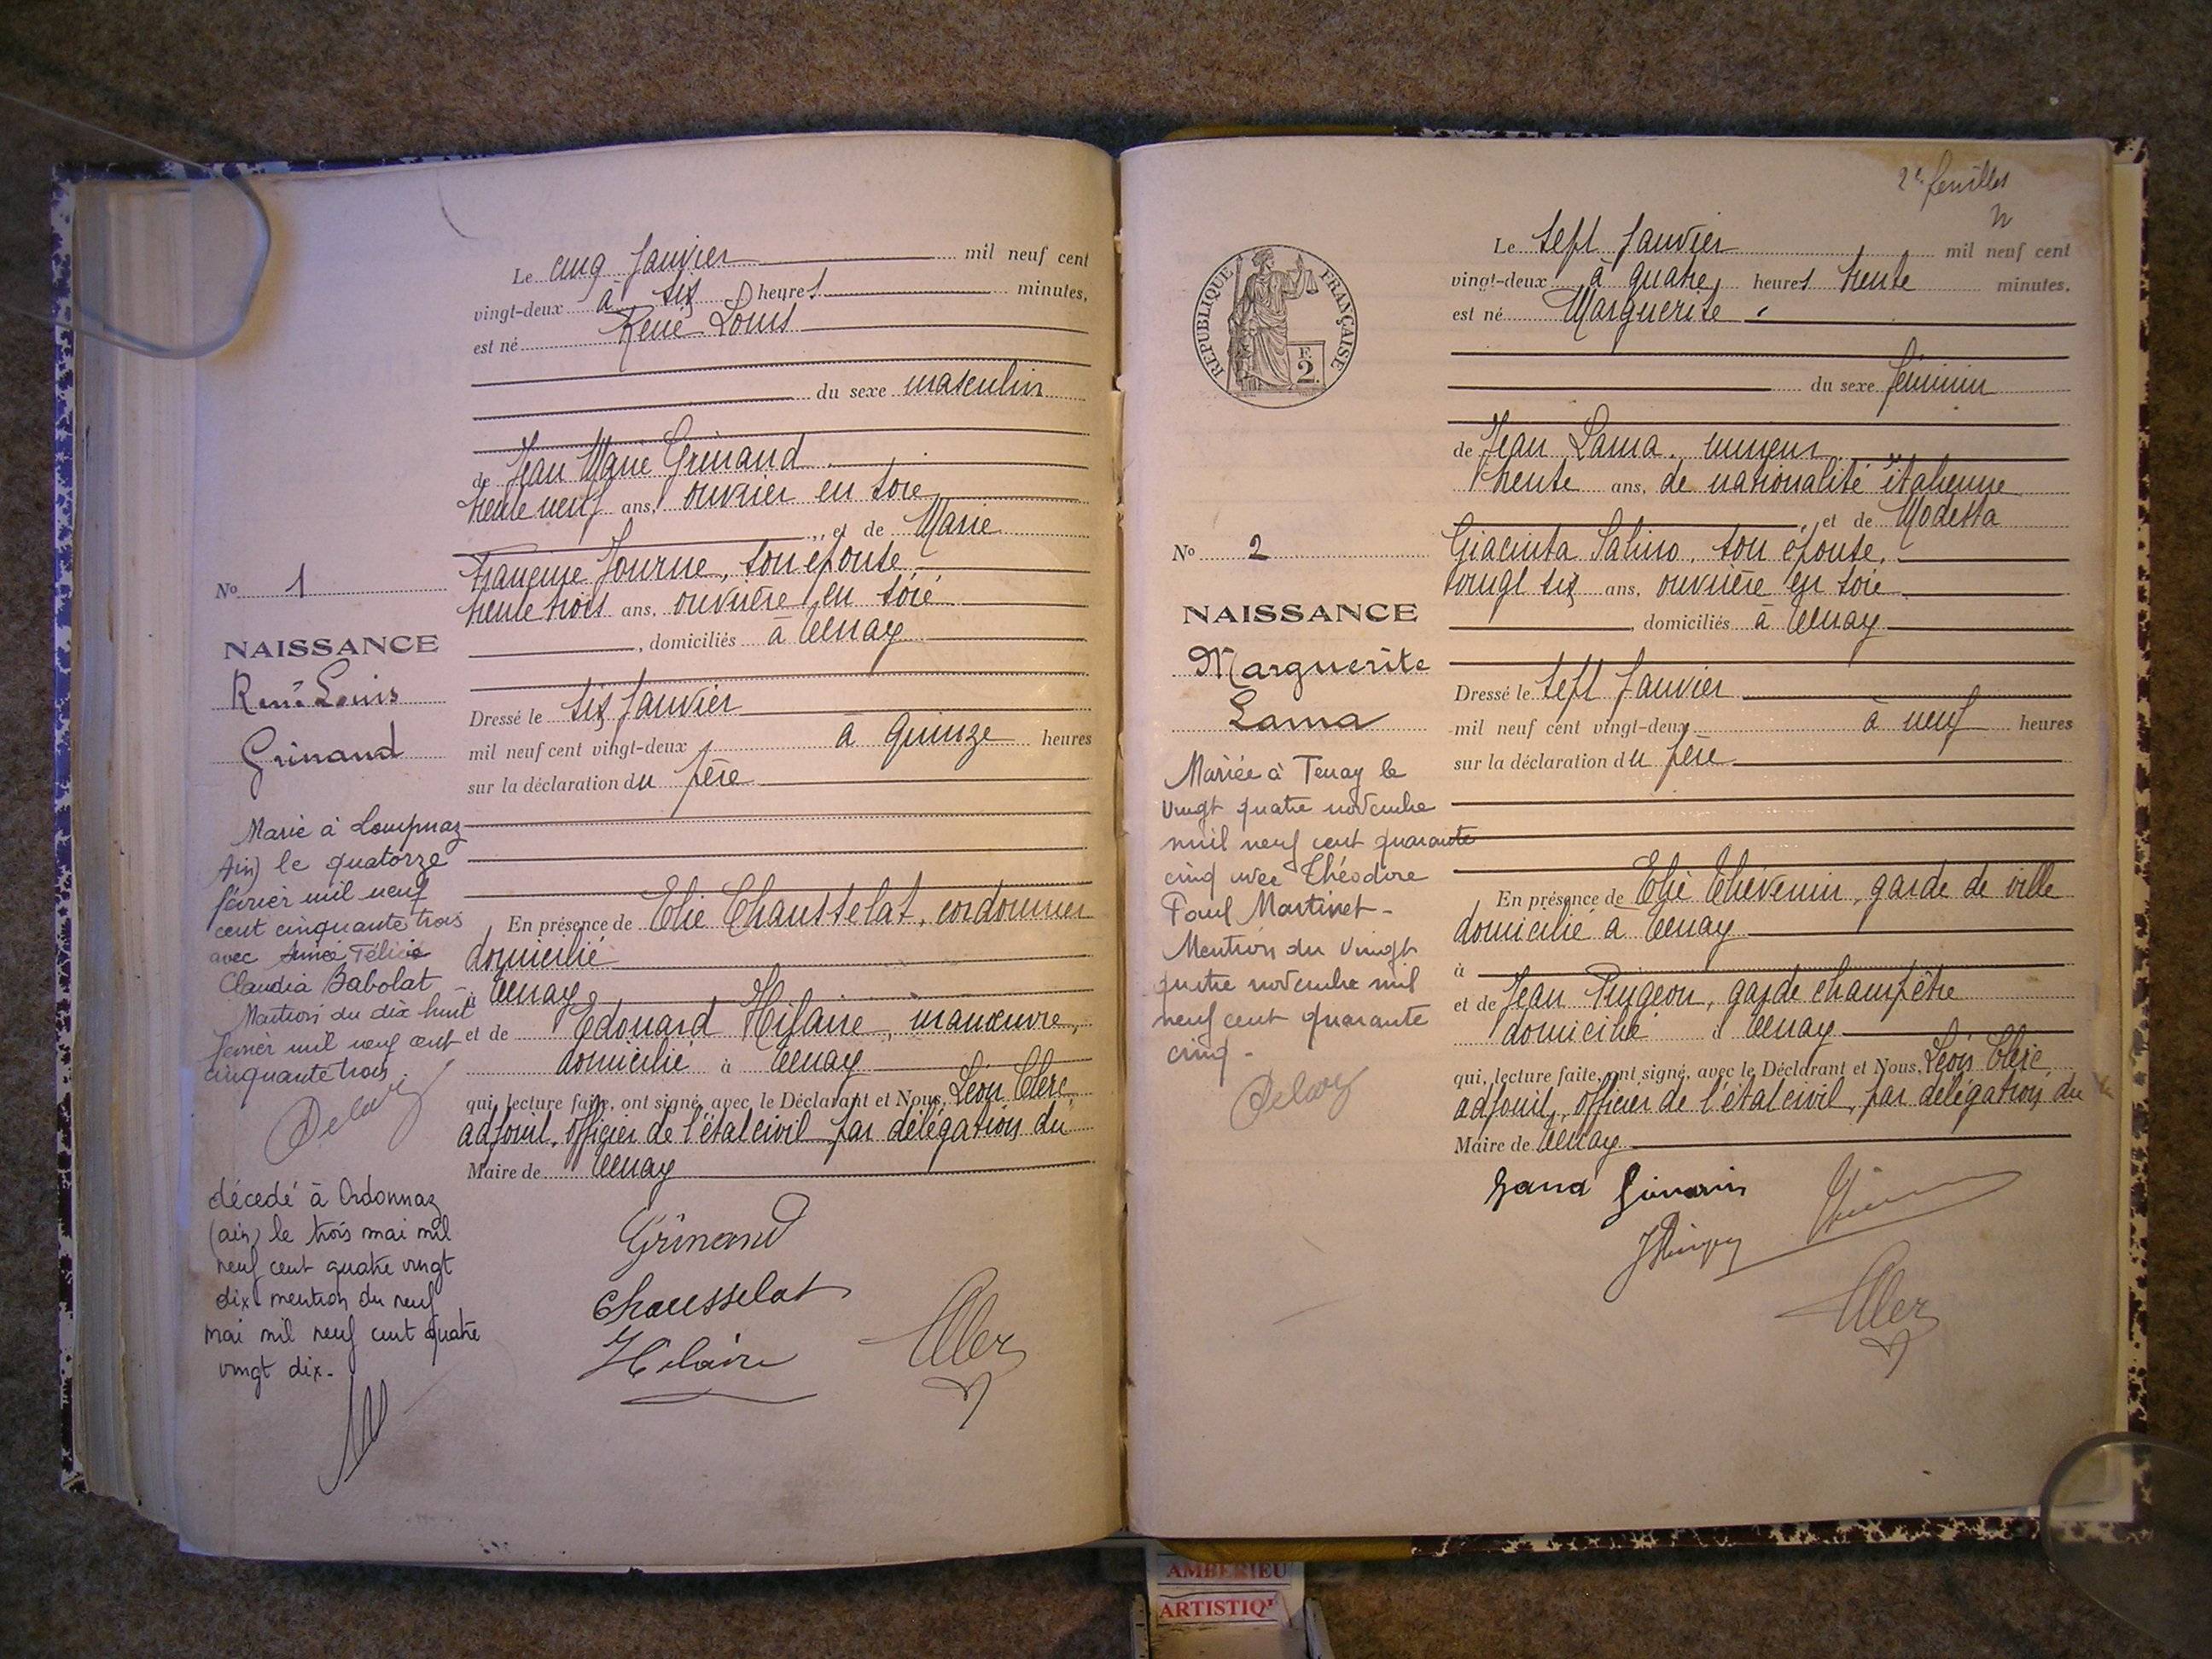 Le cinq Janvier mil neuf cent
vingt-deux à six heures minutes,
est né René Louis
du sexe masculin
de Jean Marie Grinand
trente neuf ans, ouvrier en soie
, et de Marie
Françoise Journe, son épouse
trente trois ans, ouvrière en soie
, domiciliés à Tenay
No 1
NAISSANCE
René Louis
Grinand
Dressé le six Janvier
mil neuf cent vingt-deux à quinze heures
sur la déclaration du père
Marié à Lompnaz
(Ain) le quatorze
février mil neuf
cent cinquante trois
avec Aimée Félicie
Claudia Babolat -
Mention du dix huit
février mil neuf cent
cinquante trois
Delar
En présence de Elie Chausselat, cordonnier
domicilié
à Tenay
et de Edouard Hilaire, manœuvre,
domicilié à Tenay
qui, lecture faite, ont signé, avec le Déclarant et Nous, Léon Clerc
adjoint, officier de l'état civil par délégation du
Maire de Tenay
décédé à Ordonnaz
(ain) le trois mai mil
neuf cent quatre vingt
dix. mention du neuf
mai mil neuf cent quatre
vingt dix.
Grinand
Chausselat
Hilaire
Clerc
2e feuillet
RÉPUBLIQUE FRANÇAISE
F.
2
Le sept Janvier mil neuf cent
vingt-deux à quatre heures trente minutes,
est né Marguerite
du sexe féminin
de Jean Lama, mineur
trente ans, de nationalité italienne
, et de Modesta
Giacinta Salino, son épouse,
vingt six ans, ouvrière en soie
, domiciliés à Tenay
No 2
NAISSANCE
Marguerite
Lama
Dressé le sept Janvier
mil neuf cent vingt-deux à neuf heures
sur la déclaration du père
Mariée à Tenay le
vingt quatre novembre
mil neuf cent quarante
cinq avec Théodore
Paul Martinet -
Mention du vingt
quatre novembre mil
neuf cent quarante
cinq -
En présence de Elie Thevenin, garde de ville
domicilié à Tenay
à
et de Jean Pingeon, garde champêtre
domicilié à Tenay
qui, lecture faite, ont signé, avec le Déclarant et Nous, Léon Clerc
adjoint, officier de l'état civil, par délégation du
Maire de Tenay
Clerc
AMBERIEU
ARTISTIQ